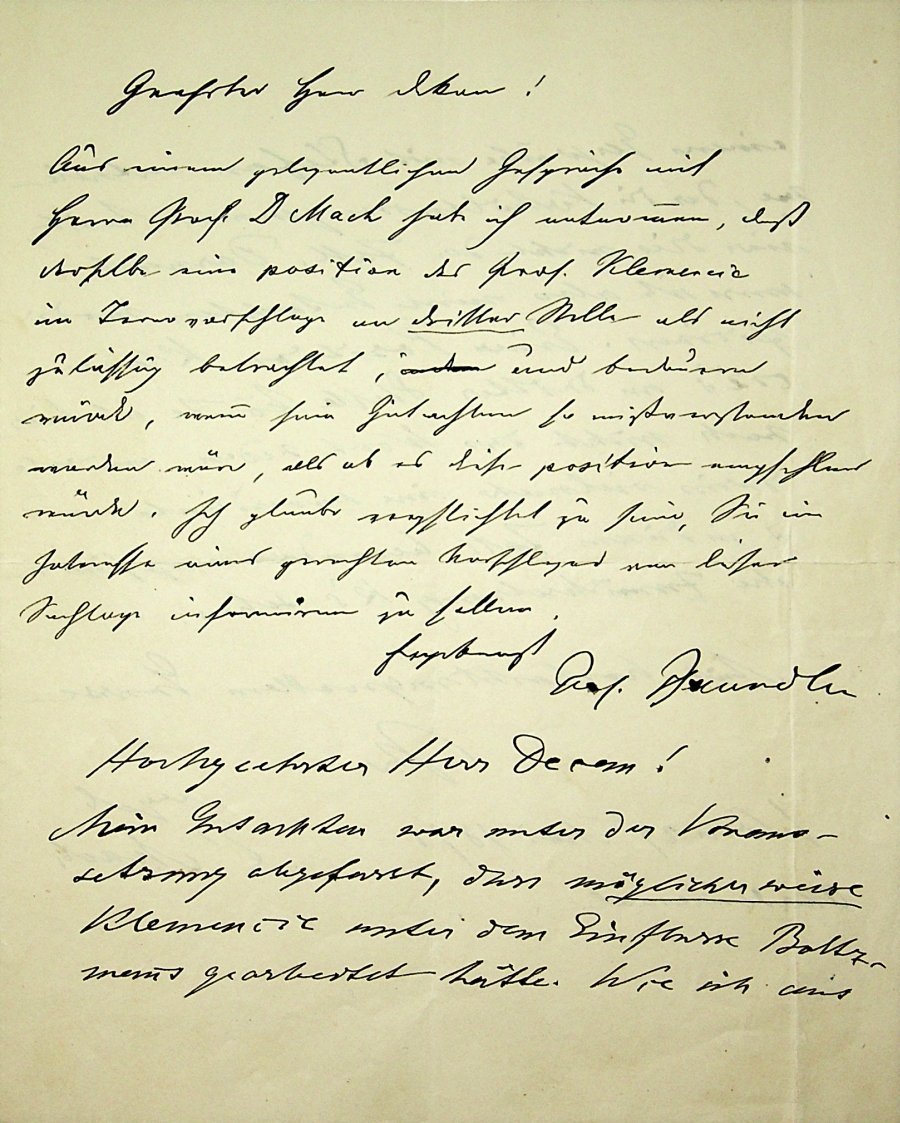 Geehrter Herr Dekan!
Aus einem gelegentlichen Gespräche mit
Herrn Prof. D Mach habe ich entnommen, daß
derselbe eine position des Prof. Klemencic
im Ternovorschlage an dritter Stelle als nicht
zulässig betrachtet, und bedauern
würde, wenn sein Gutachten so mißverstanden
worden wäre, als ob es diese position empfehlen
würde. Ich glaube verpflichtet zu sein, Sie im
Interesse eines gerechten Vorschlages von dieser
Sachlage informiren zu sollen.
Ergebenst
Prof.
Hochgeehrter Herr Decan!
Mein Gutachten war unter der Voraus-
setzung abgefasst, dass möglicherweise
Klemencic unter dem Einflusse Boltz-
manns gearbeitet hätte. Wie ich aus